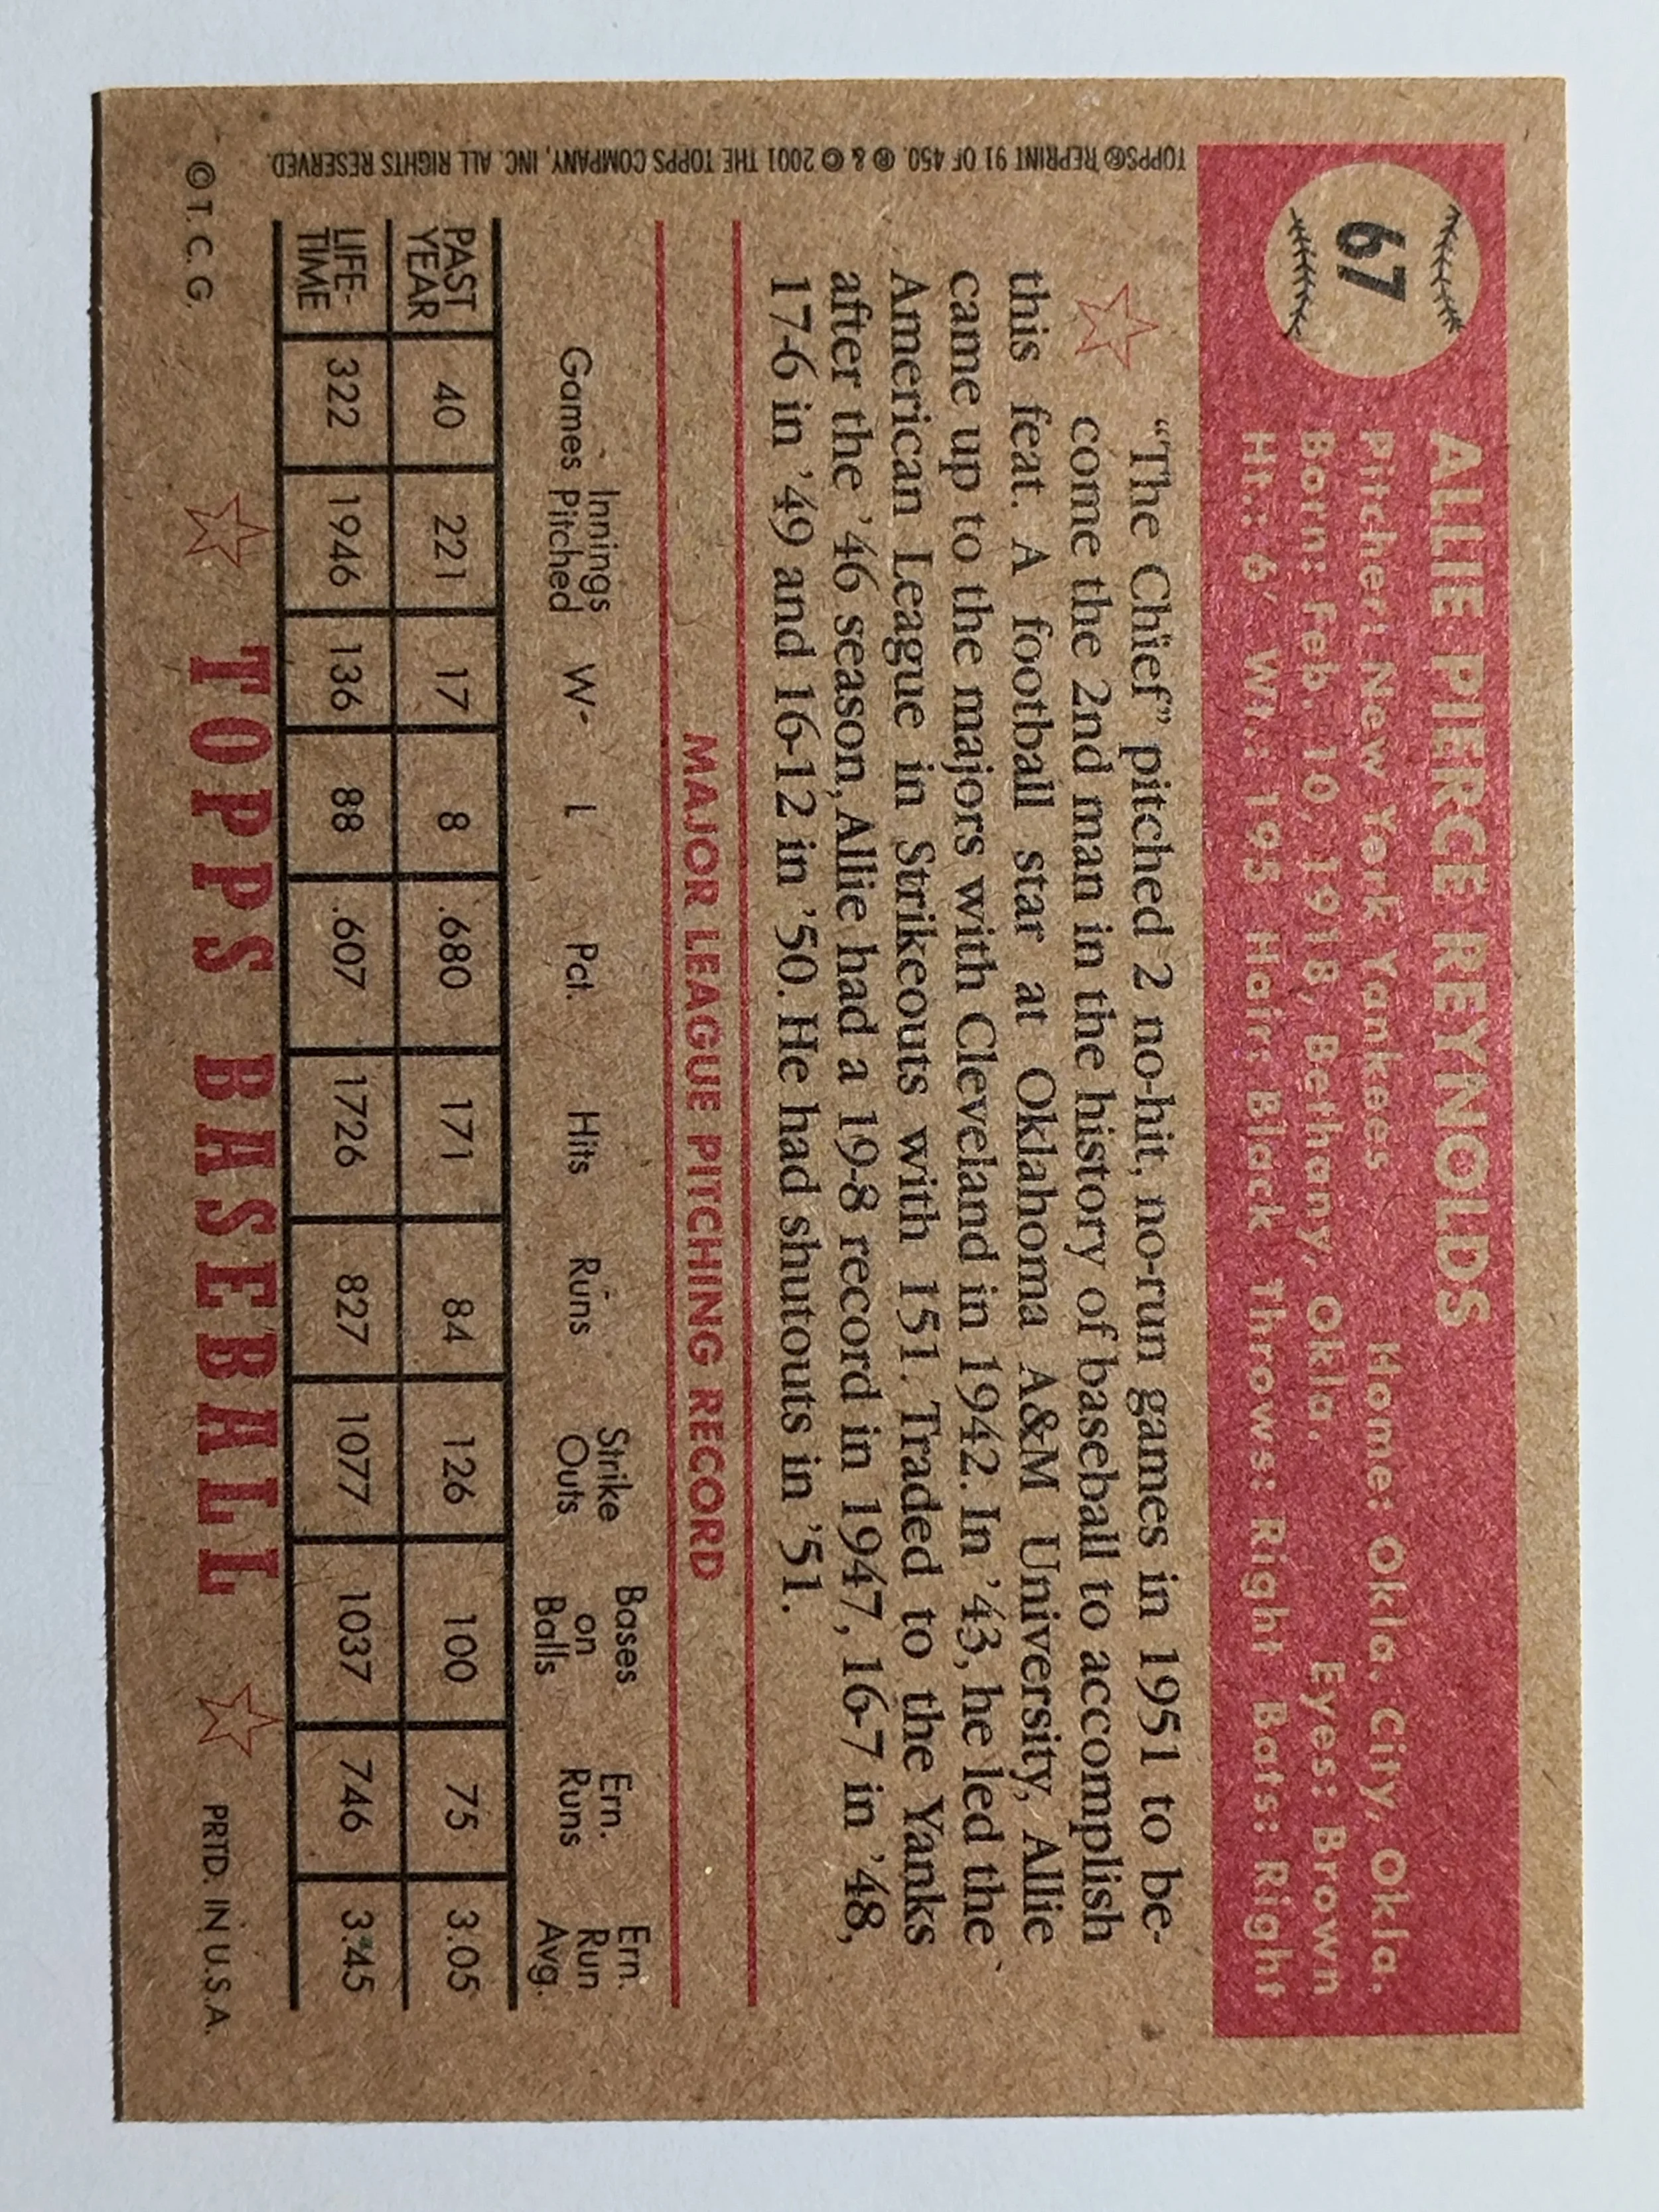 67
ALLIE PIERCE REYNOLDS
Pitcher: New York Yankees Home: Okla. City, Okla.
Born: Feb. 10, 1918, Bethany, Okla. Eyes: Brown
Ht.: 6' Wt.: 195 Hair: Black Throws: Right Bats: Right
"The Chief" pitched 2 no-hit, no-run games in 1951 to be-
come the 2nd man in the history of baseball to accomplish
this feat. A football star at Oklahoma A&M University, Allie
came up to the majors with Cleveland in 1942. In '43, he led the
American League in Strikeouts with 151. Traded to the Yanks
after the '46 season, Allie had a 19-8 record in 1947, 16-7 in '48,
17-6 in '49 and 16-12 in '50. He had shutouts in '51.
MAJOR LEAGUE PITCHING RECORD
Games Innings Pitched W- L Pct. Hits Runs Strike Outs Bases on Balls Ern. Runs Ern. Run Avg.
PAST YEAR 40 221 17 8 .680 171 84 126 100 75 3.05
LIFE-TIME 322 1946 136 88 .607 1726 827 1077 1037 746 3.45
© T. C. G. TOPPS BASEBALL PRTD. IN U.S.A.
TOPPS® REPRINT 91 OF 450. ® & © 2001 THE TOPPS COMPANY, INC. ALL RIGHTS RESERVED.